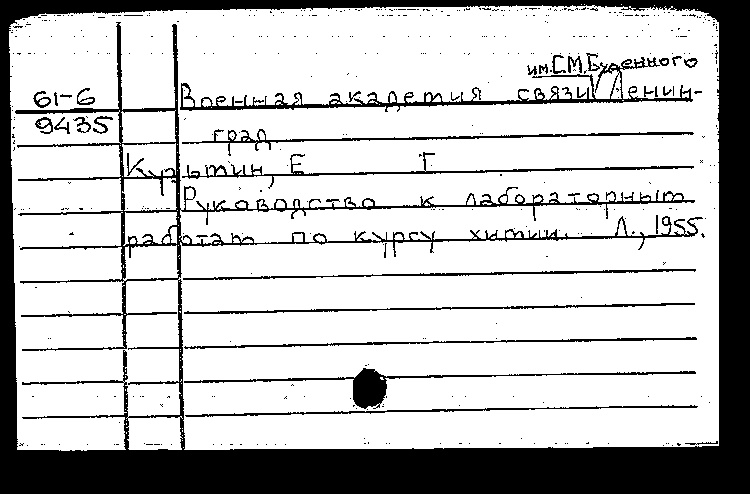 им. С.М.Буденного
61-6 Военная академия связи Ленин-
9435 град
Курзьтин, Е Г
Руководство к лабораторным
работам по курсу химии. Л., 1955.